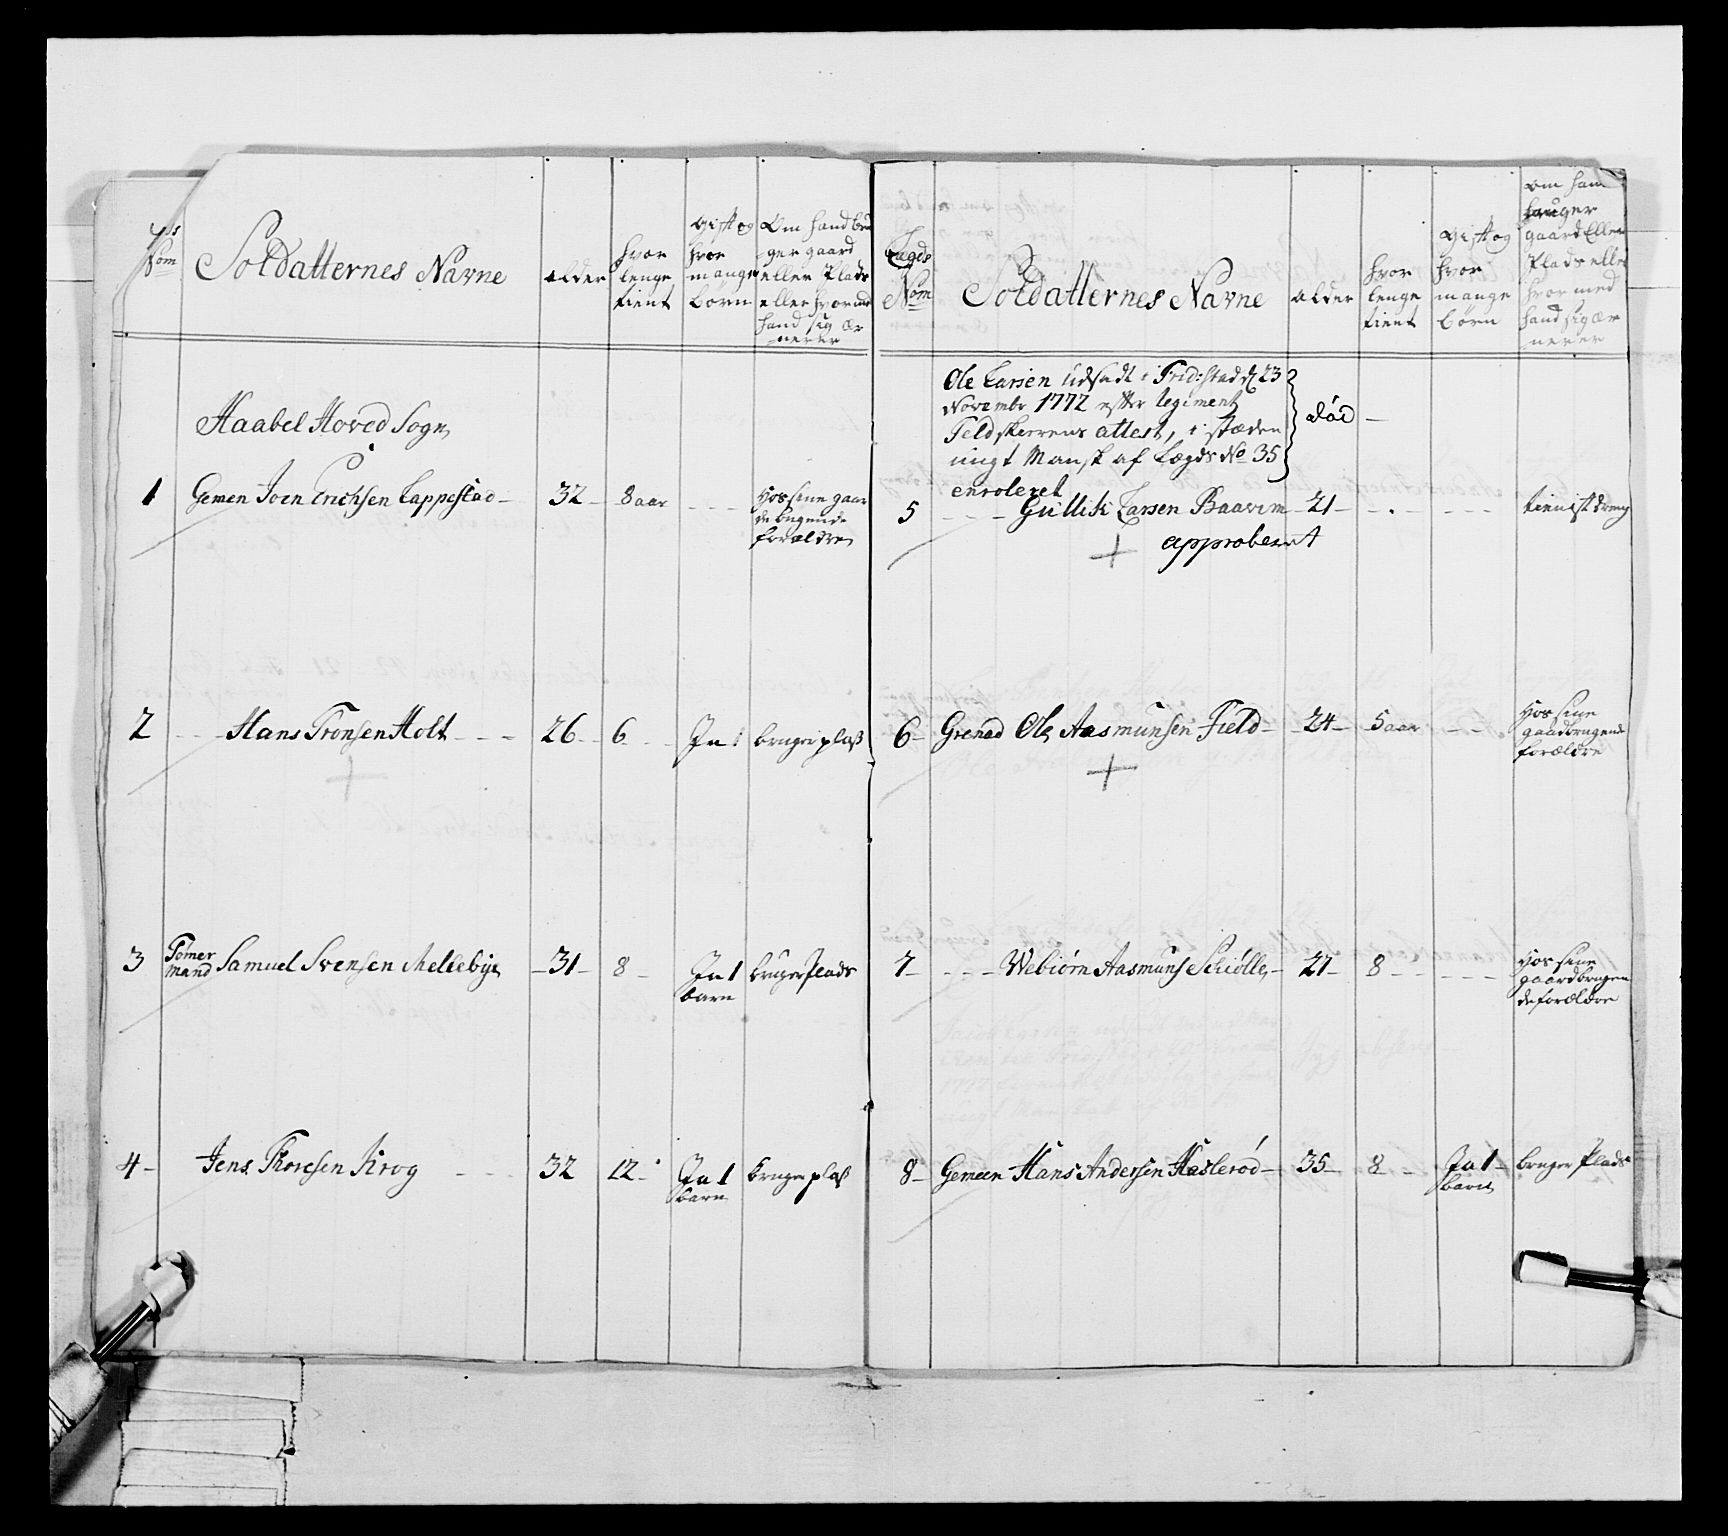 Nom
Soldatternes Navne
alder
hvor
lenge
tient
gift og
hvor
mange
börn
Om hand bru
ger gaard
eller Plads
eller hvormed
hand sig ær
nerer
Haabel Hoved Sogn
1 Gemen Joen Erichsen Lappestad 32 8 aar
Hos sine gaar
de brugende
forældre
2 Hans Tronsen Holt 26 6 Ja 1 bruger plass
3 Tømer
mand Samuel Svensen Mellebye 31 8 Ja 1
barn
bruger Plads
4 Jens Thoresen Krog 32 12 Ja 1
barn
bruger plass
Lægds
Nom
Soldatternes Navne
alder
hvor
lenge
tient
gift og
hvor
mange
börn
om hand
bruger
gaard Eller
Plads eller
hvor med
hand sig ær
nerer
Ole Larsen udsadt i Frid:stad d 23
Novembr 1772 efter Regiments
Feldskerrens attest, i stæden
ungt Mansk af Lægds No 35
enroleret
død
5 Gullik Larsen Baarem 21 tienist dreng
approberet
6 Grenad Ole Aasmunsen Field 24 5 aar
Hos sine
gaadbrugende
forældre
7 Webiørn Aasmuns Schiølle 27 8
Hos sine
gaardbrugen
de forældre
8 Gemeen Hans Andersen Haslerød 35 8 Ja 1
barn
bruger Plads